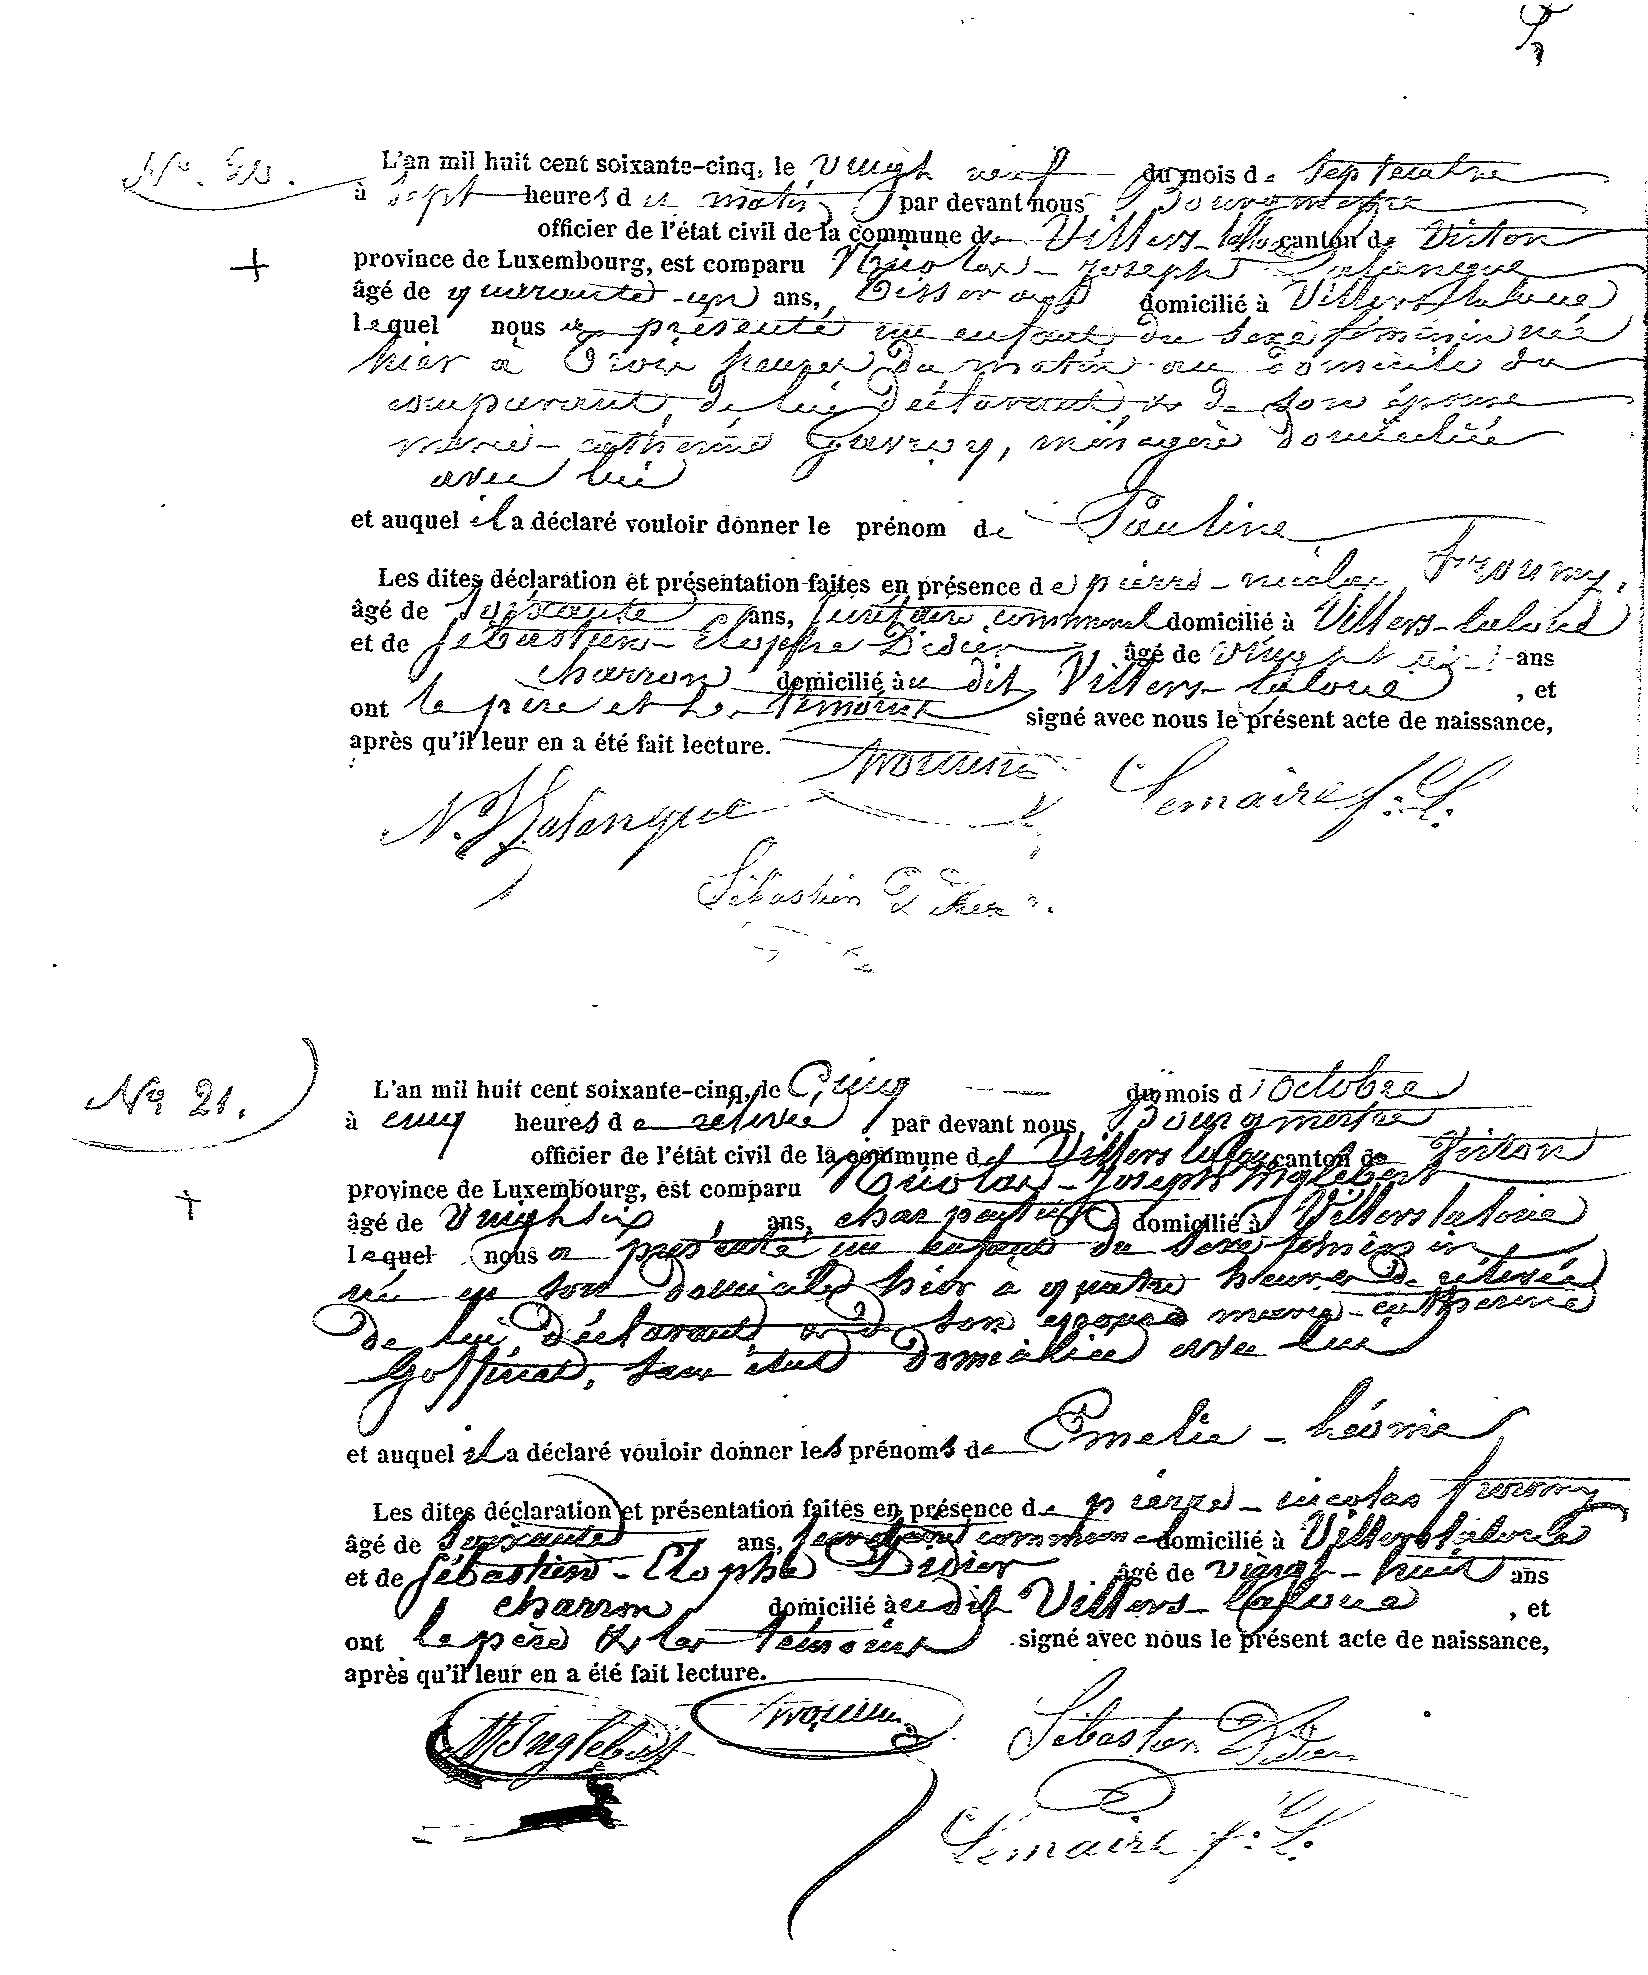 N°. 20.
L'an mil huit cent soixante-cinq, le vingt neuf du mois de septembre
à sept heures du matin, par devant nous Bourgmestre
officier de l'état civil de la commune de Villers-la-loue canton de Virton
province de Luxembourg, est comparu Nicolas-Joseph Lalangue
âgé de quarante-un ans, Tisserand domicilié à Villers laloue
lequel nous a présenté un enfant du sexe féminin né
hier à Trois heures du matin au domicile du
comparant, de lui déclarant et de son épouse
marie-catherine Gavroy, ménagère domiciliée
avec lui
et auquel il a déclaré vouloir donner le prénom de Pauline
Les dites déclaration et présentation faites en présence de pierre-nicolas
âgé de soixante ans, secrétaire communal domicilié à Villers-laloue
et de Sébastien-Elophe Didier âgé de vingt ans
charron domicilié audit Villers-laloue, et
ont le père et les témoins signé avec nous le présent acte de naissance,
après qu'il leur en a été fait lecture.
Lemaire f. L.
N. J. Lalangue
Sébastien Didier
N° 21.
L'an mil huit cent soixante-cinq, le Cinq du mois d'octobre
à cinq heures de relevée, par devant nous Bourgmestre
officier de l'état civil de la commune de Villers laloue canton de Virton
province de Luxembourg, est comparu Nicolas-Joseph Inglebert
âgé de Vingt six ans, charpentier domicilié à Villers laloue
lequel nous a présenté un enfant du sexe féminin
né en son domicile hier à quatre heures de relevée
de lui déclarant et de son épouse marie-catherine
Goffinet, sans état domiciliée avec lui
et auquel il a déclaré vouloir donner les prénoms de Emelie-Léonie
Les dites déclaration et présentation faites en présence de pierre-nicolas
âgé de soixante ans, secrétaire communal domicilié à Villers laloue
et de Sébastien-Elophe Didier âgé de vingt-huit ans
charron domicilié audit Villers-laloue, et
ont le père et les témoins signé avec nous le présent acte de naissance,
après qu'il leur en a été fait lecture.
NJ Inglebert
Sébastien Didier
Lemaire f. L.